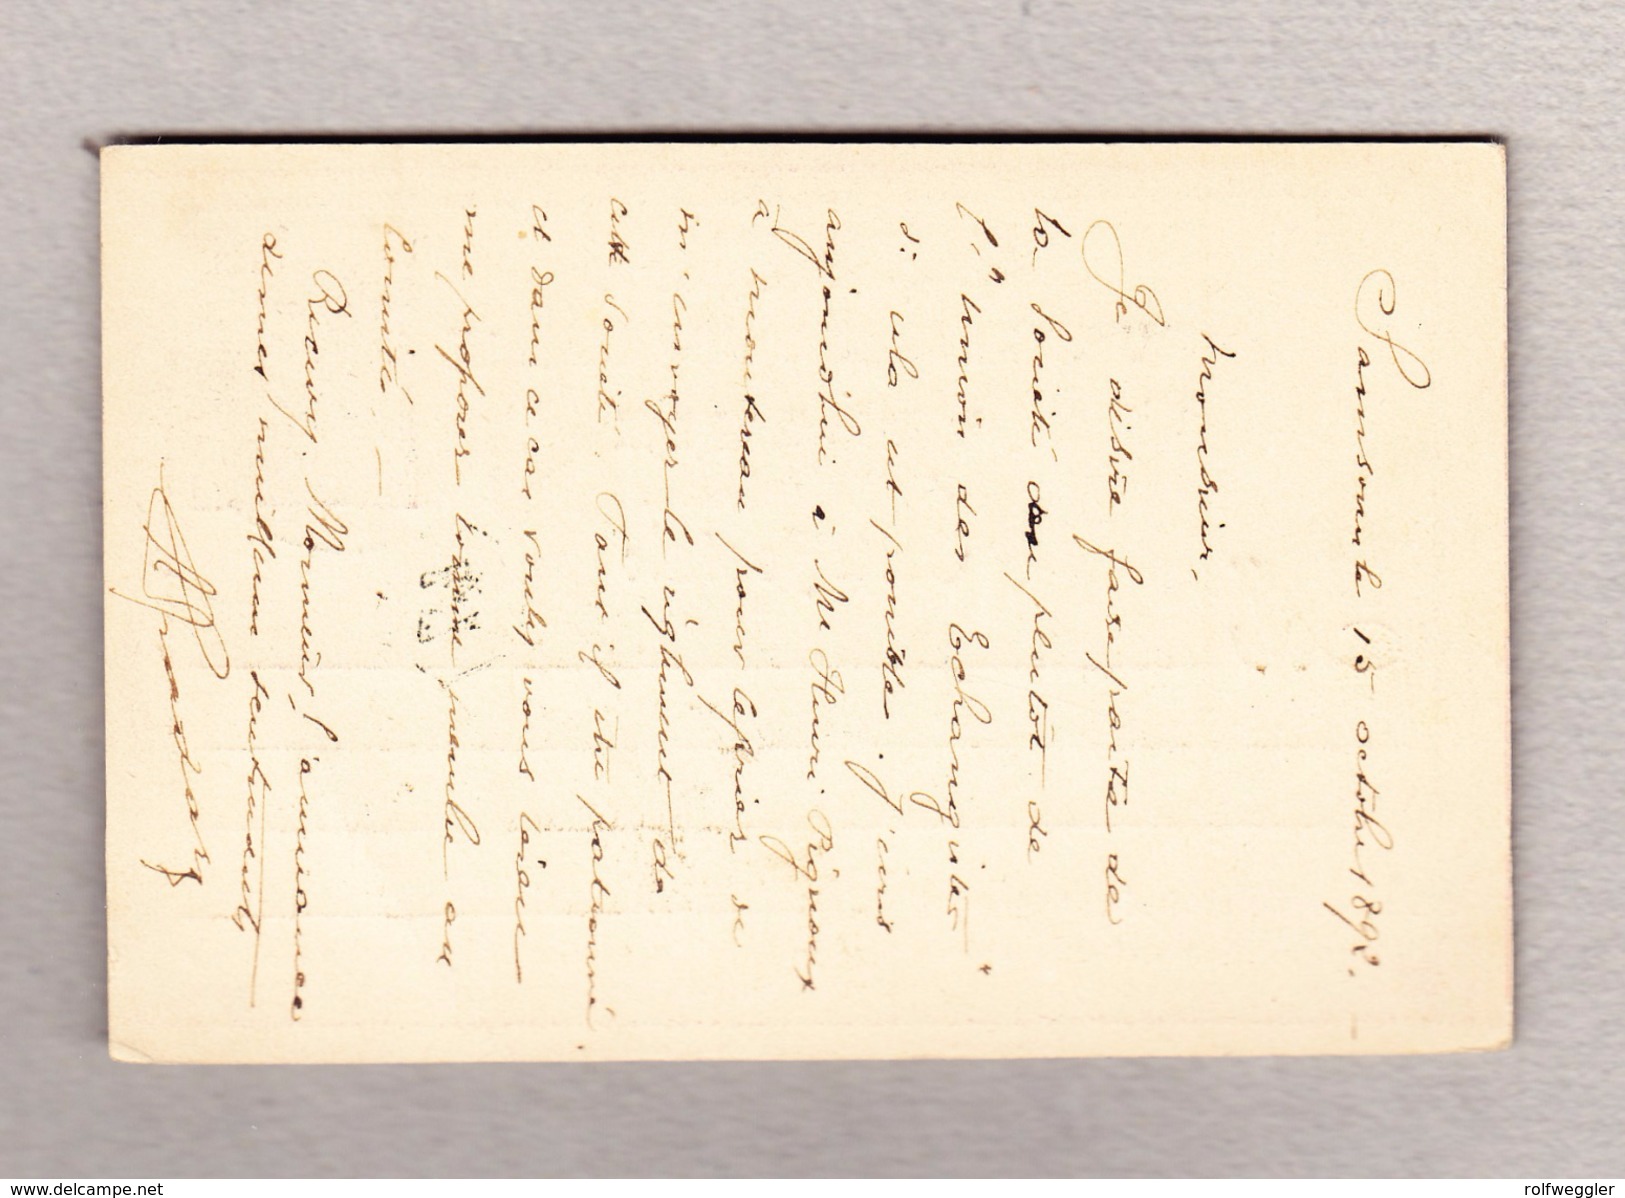 Samsoun le 15 octobre 1892. –
Monsieur,
Je désire faire partie de
la Société ou plutôt de
l'"Union des Echangistes"
si cela est possible. J'écris
aujourd'hui à Mr Henri Pigrioux
à Montereau pour le prier de
m'envoyer le règlement de
cette Société. Faut-il être patronné
et dans ce cas voulez vous bien
me proposer comme membre au
Comité. –
Recevez, Monsieur, l'assurance
de mes meilleurs sentiments
www.delcampe.net
rolfweggler